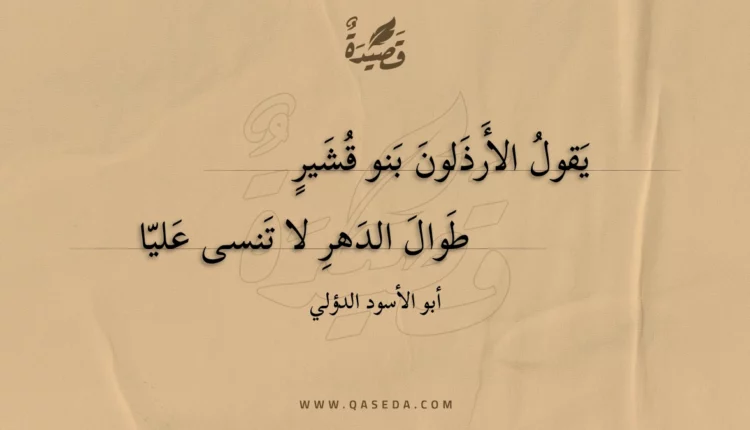 قَصِيدَةٌ
يَقولُ الأَرذَلونَ بَنو قُشَيرٍ
طَوالَ الدَهرِ لا تَنسى عَليّا
أبو الأسود الدؤلي
WWW.QASEDA.COM